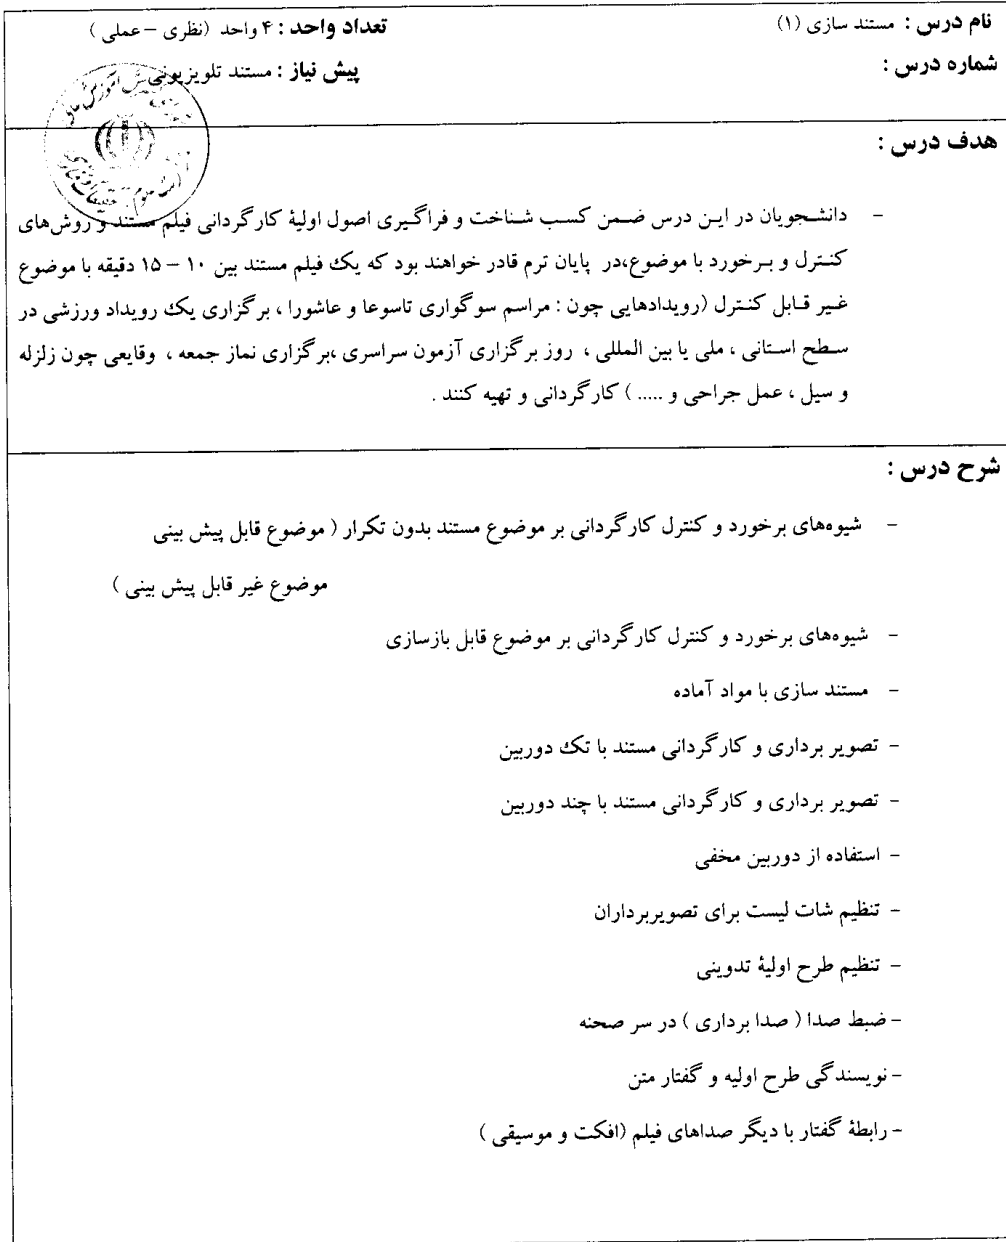 نام درس : مستند سازی (۱)
تعداد واحد : ۴ واحد (نظری – عملی )
شماره درس :
پیش نیاز : مستند تلویزیونی
هدف درس :
- دانشجویان در این درس ضمن کسب شناخت و فراگیری اصول اولیهٔ کارگردانی فیلم مستند و روش‌های
کنترل و برخورد با موضوع،در پایان ترم قادر خواهند بود که یک فیلم مستند بین ۱۰ – ۱۵ دقیقه با موضوع
غیر قابل کنترل (رویدادهایی چون : مراسم سوگواری تاسوعا و عاشورا ، برگزاری یک رویداد ورزشی در
سطح استانی ، ملی یا بین المللی ، روز برگزاری آزمون سراسری ،برگزاری نماز جمعه ، وقایعی چون زلزله
و سیل ، عمل جراحی و ..... ) کارگردانی و تهیه کنند .
شرح درس :
- شیوه‌های برخورد و کنترل کارگردانی بر موضوع مستند بدون تکرار ( موضوع قابل پیش بینی
موضوع غیر قابل پیش بینی )
- شیوه‌های برخورد و کنترل کارگردانی بر موضوع قابل بازسازی
- مستند سازی با مواد آماده
- تصویر برداری و کارگردانی مستند با تک دوربین
- تصویر برداری و کارگردانی مستند با چند دوربین
- استفاده از دوربین مخفی
- تنظیم شات لیست برای تصویربرداران
- تنظیم طرح اولیهٔ تدوینی
- ضبط صدا ( صدا برداری ) در سر صحنه
- نویسندگی طرح اولیه و گفتار متن
- رابطهٔ گفتار با دیگر صداهای فیلم (افکت و موسیقی )